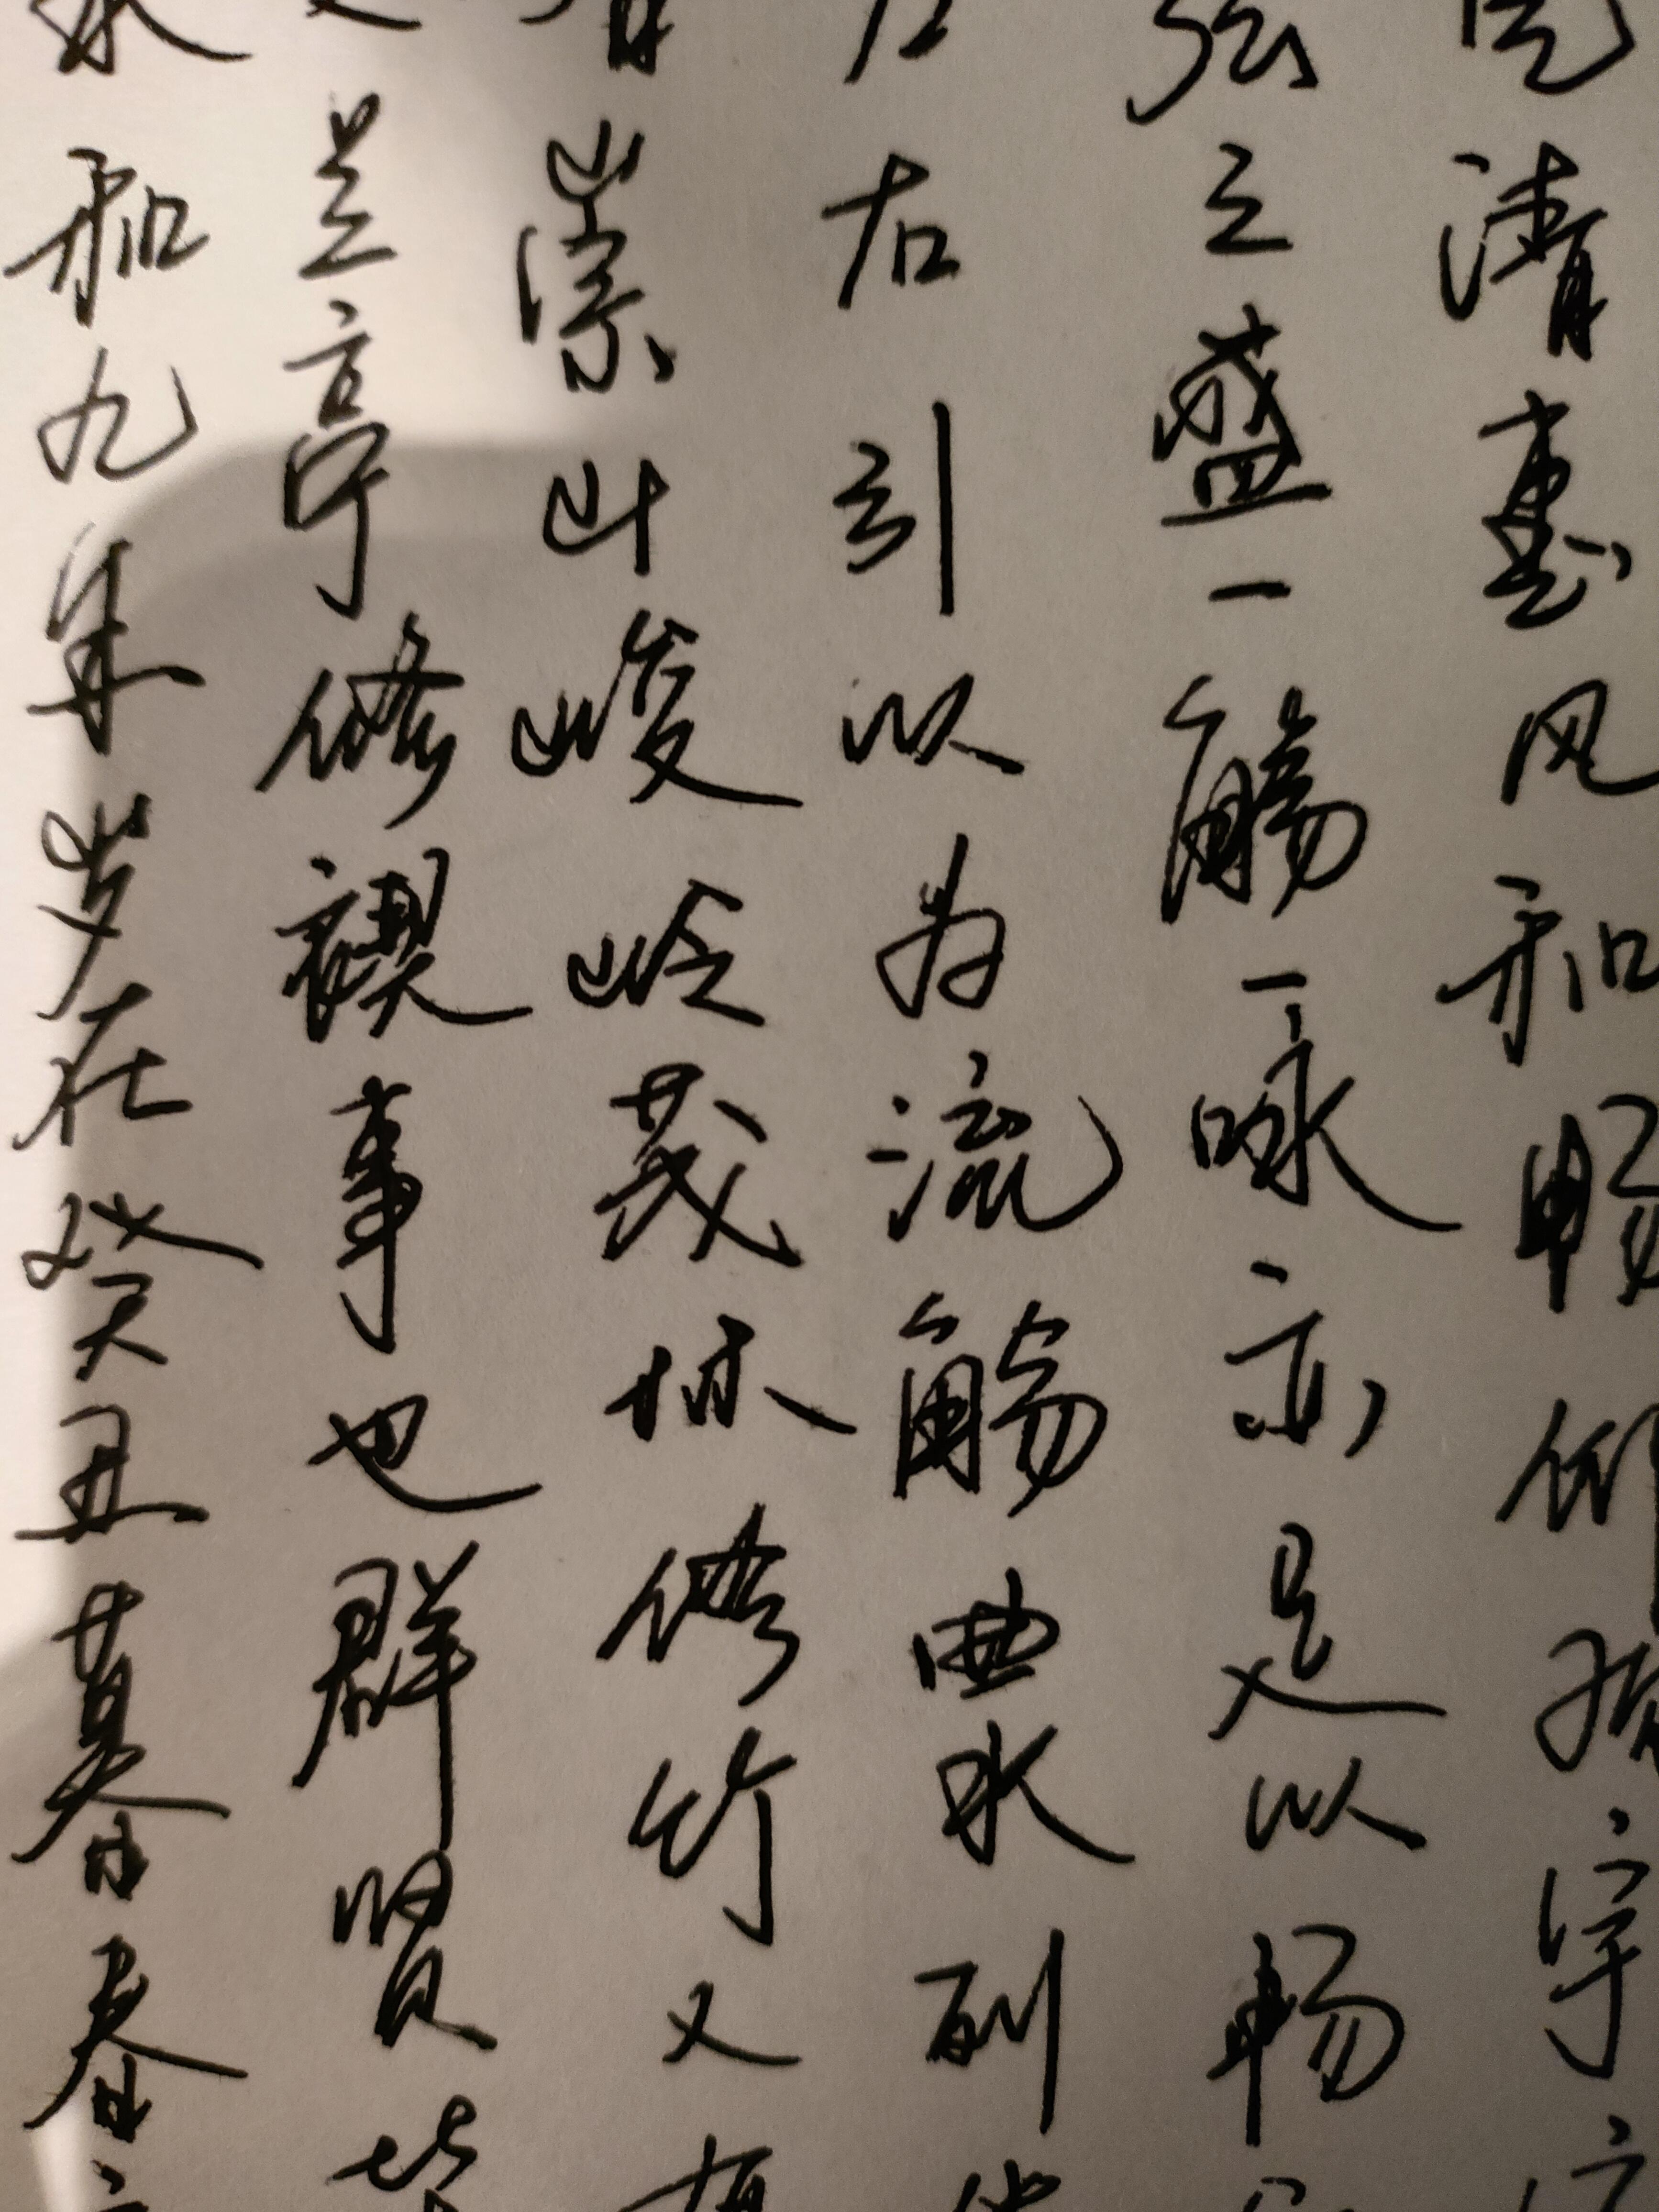 永和九年岁在癸丑暮春
兰亭修禊事也群贤毕
有崇山峻岭茂林修竹又有
左右引以为流觞曲水列坐
弦之盛一觞一咏亦足以畅
气清惠风和畅仰观宇